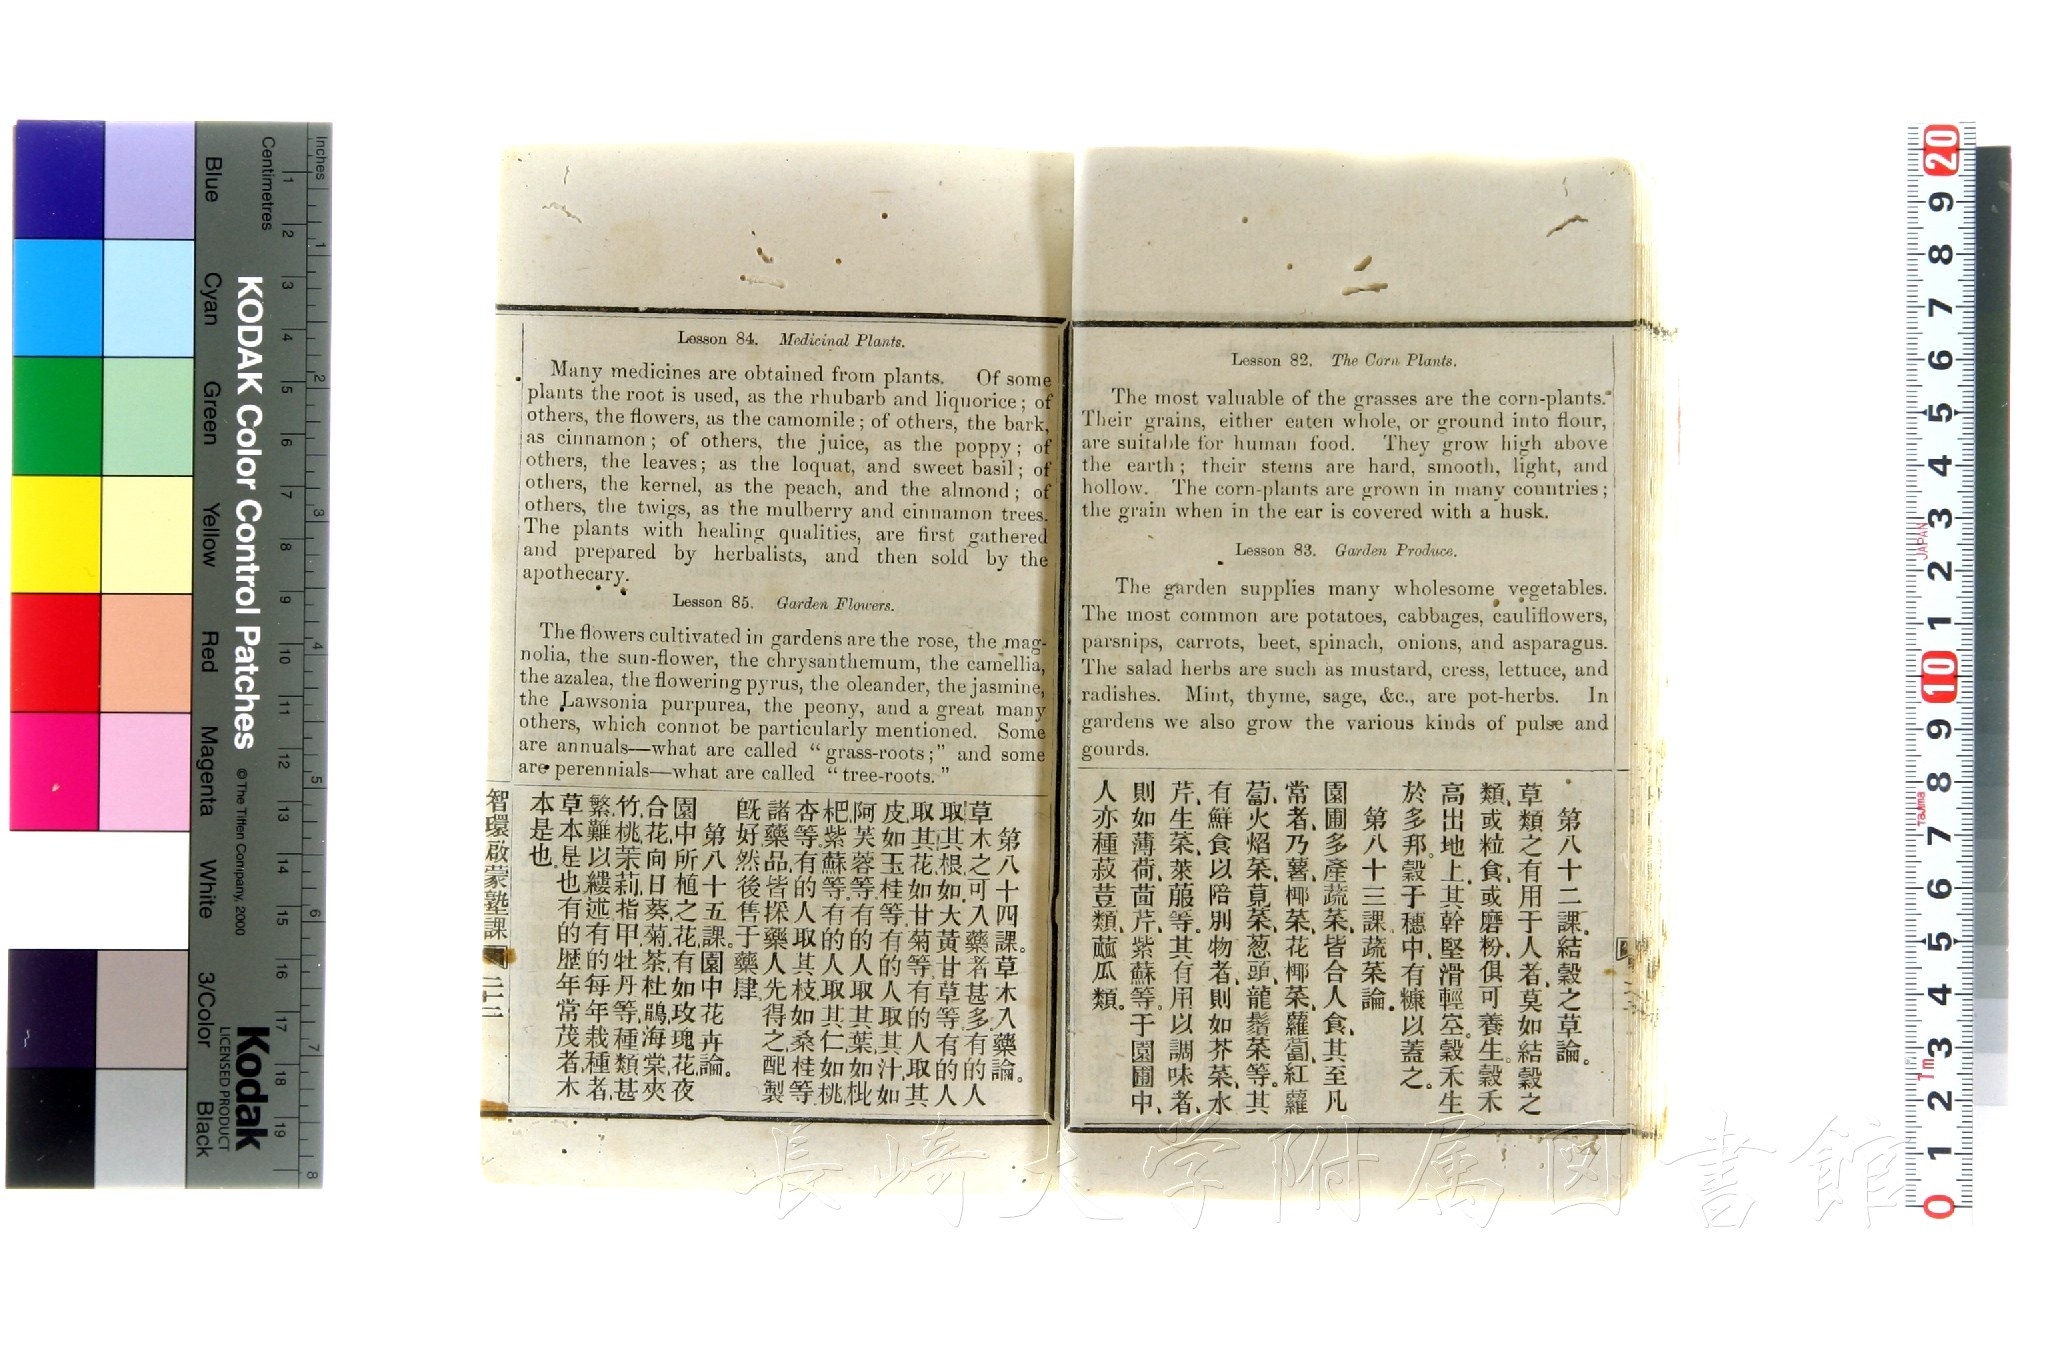 Lesson 82. The Corn Plants.
The most valuable of the grasses are the corn-plants.
Their grains, either eaten whole, or ground into flour,
are suitable for human food. They grow high above
the earth; their stems are hard, smooth, light, and
hollow. The corn-plants are grown in many countries;
the grain when in the ear is covered with a husk.
Lesson 83. Garden Produce.
The garden supplies many wholesome vegetables.
The most common are potatoes, cabbages, cauliflowers,
parsnips, carrots, beet, spinach, onions, and asparagus.
The salad herbs are such as mustard, cress, lettuce, and
radishes. Mint, thyme, sage, &c., are pot-herbs. In
gardens we also grow the various kinds of pulse and
gourds.
第八十二課。結穀之草論。
草類之有用于人者、莫如結穀之
類、或粒食、或磨粉、俱可養生。穀禾
高出地上、其幹堅滑輕空。穀禾生
於多邦。穀于穗中、有糠以蓋之。
第八十三課。蔬菜論。
園圃多產蔬菜、皆合人食、其至凡
常者、乃薯、椰菜、花椰菜、蘿蔔、紅蘿
蔔、火焰菜、莧菜、葱頭、龍鬚菜等。其
有鮮食以陪別物者、則如芥菜、水
芹、生菜、萊菔等。其有用以調味者、
則如薄荷、茴芹、紫蘇等。于園圃中、
人亦種菽荳類、蓏瓜類。
Lesson 84. Medicinal Plants.
Many medicines are obtained from plants. Of some
plants the root is used, as the rhubarb and liquorice; of
others, the flowers, as the camomile; of others, the bark,
as cinnamon; of others, the juice, as the poppy; of
others, the leaves; as the loquat, and sweet basil; of
others, the kernel, as the peach, and the almond; of
others, the twigs, as the mulberry and cinnamon trees.
The plants with healing qualities, are first gathered
and prepared by herbalists, and then sold by the
apothecary.
Lesson 85. Garden Flowers.
The flowers cultivated in gardens are the rose, the mag-
nolia, the sun-flower, the chrysanthemum, the camellia,
the azalea, the flowering pyrus, the oleander, the jasmine,
the Lawsonia purpurea, the peony, and a great many
others, which connot be particularly mentioned. Some
are annuals—what are called “grass-roots;” and some
are perennials—what are called “tree-roots.”
第八十四課。草木入藥論。
草木之可入藥者甚多、有的人
取其根、如大黃甘草等、有的人
取其花、如甘菊等、有的人取其
皮、如玉桂等、有的人取其汁、如
阿芙蓉等、有的人取其葉、如枇
杷、紫蘇等、有的人取其仁、如桃、
杏等、有的人取其枝、如桑桂等。
諸藥品、皆採藥人先得之、配製
旣好、然後售于藥肆。
第八十五課。園中花卉論。
園中所植之花、有如玫瑰花、夜
合花、向日葵、菊、茶、杜鵑、海棠、夾
竹桃、茉莉、指甲、牡丹等、種類甚
繁、難以縷述、有的每年栽種者、
草本是也、有的歷年常茂者、木
本是也。
智環啟蒙塾課
二十三
KODAK Color Control Patches
© The Tiffen Company, 2000
Kodak
LICENSED PRODUCT
Inches
1 2 3 4 5 6 7 8
Centimetres
1 2 3 4 5 6 7 8 9 10 11 12 13 14 15 16 17 18 19
Blue
Cyan
Green
Yellow
Red
Magenta
White
3/Color
Black
20 9 8 7 6 5 4 3 2 1 10 9 8 7 6 5 4 3 2 1 0
JAPAN
Tajima
1m
長崎大学附属図書館